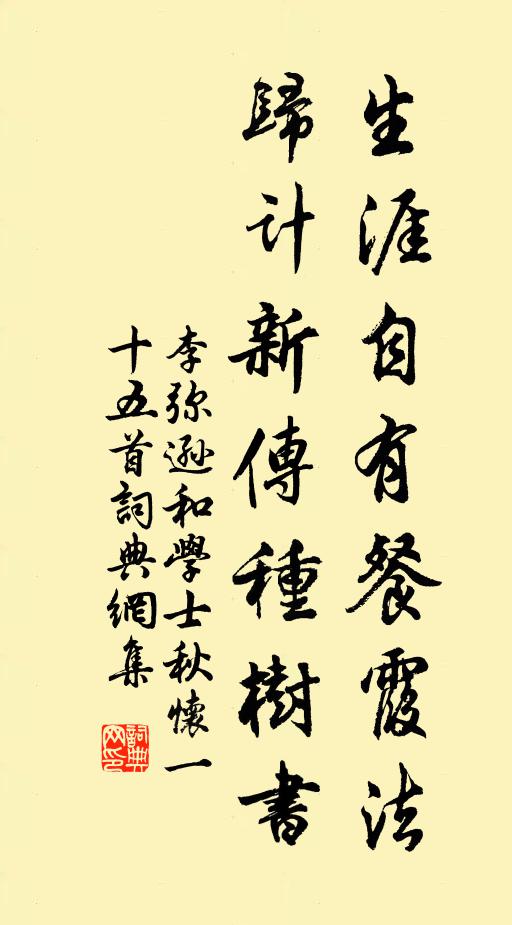 生涯自有餐霞法
歸计新傳種樹書
李弥遜和學士秋懷一
十五首詞典網集
詞典
网印